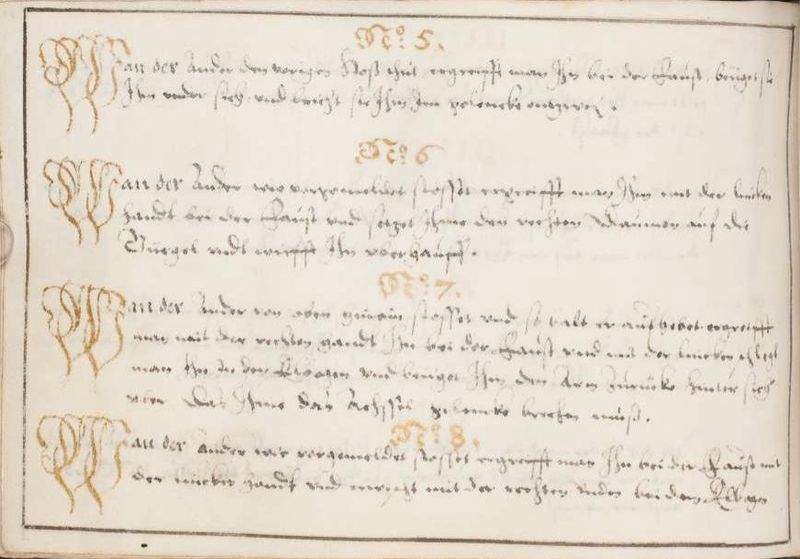 No. 5.
Wan der Ander den vorigen Stoß thut, ergreifft man Ihn bei der Faust, beüget sie
Ihm vnder sich vnd bricht sie Ihm Im gelencke entzwey.
No. 6
Wan der Ander wie vorgemeldet stosset ergreifft man Ihm mit der lincken
handt bei der Faust vnd setzet Ihme den rechten Daumen auf die
Gurgel vndt wirfft Ihn vberhauff.
No. 7.
Wan der Ander von oben hinein stosset vnd so balt er aufhebet ergreifft
man mit der rechten handt Ihn bei der Faust vnd mit der lincken schlegt
man Ihn In den Elbogen vnd beuget Ihm den Arm zurücke hinter sich
vber das Ihme das Achssel gelencke brechen muß.
No. 8.
Wan der Ander wie vorgemeldet stosset ergreifft man Ihn bei der Faust mit
der lincken handt vnd mit der rechten vnden bei dem Elbogen